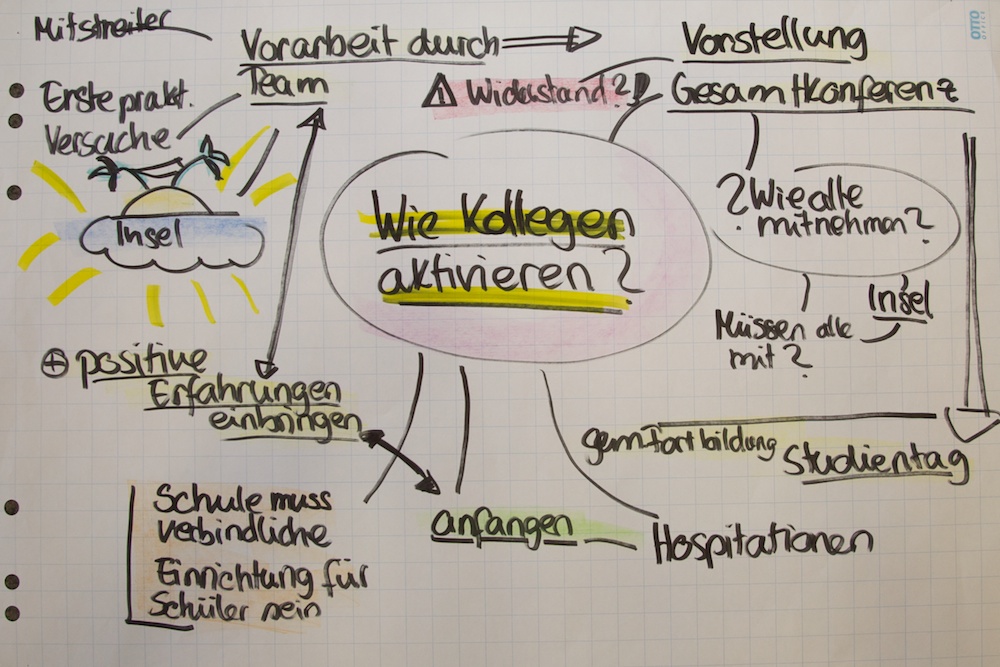 Mitstreiter
Vorarbeit durch
Team
Vorstellung
Gesamtkonferenz
OTTO
OFFICE
Widerstand?!
Erste prakt.
Versuche
Insel
Wie Kollegen
aktivieren?
? Wie alle
mitnehmen?
Insel
Müssen alle
mit?
+ positive
Erfahrungen
einbringen
gem Fortbildung
Studientag
Schule muss
verbindliche
Einrichtung für
Schüler sein
anfangen
Hospitationen